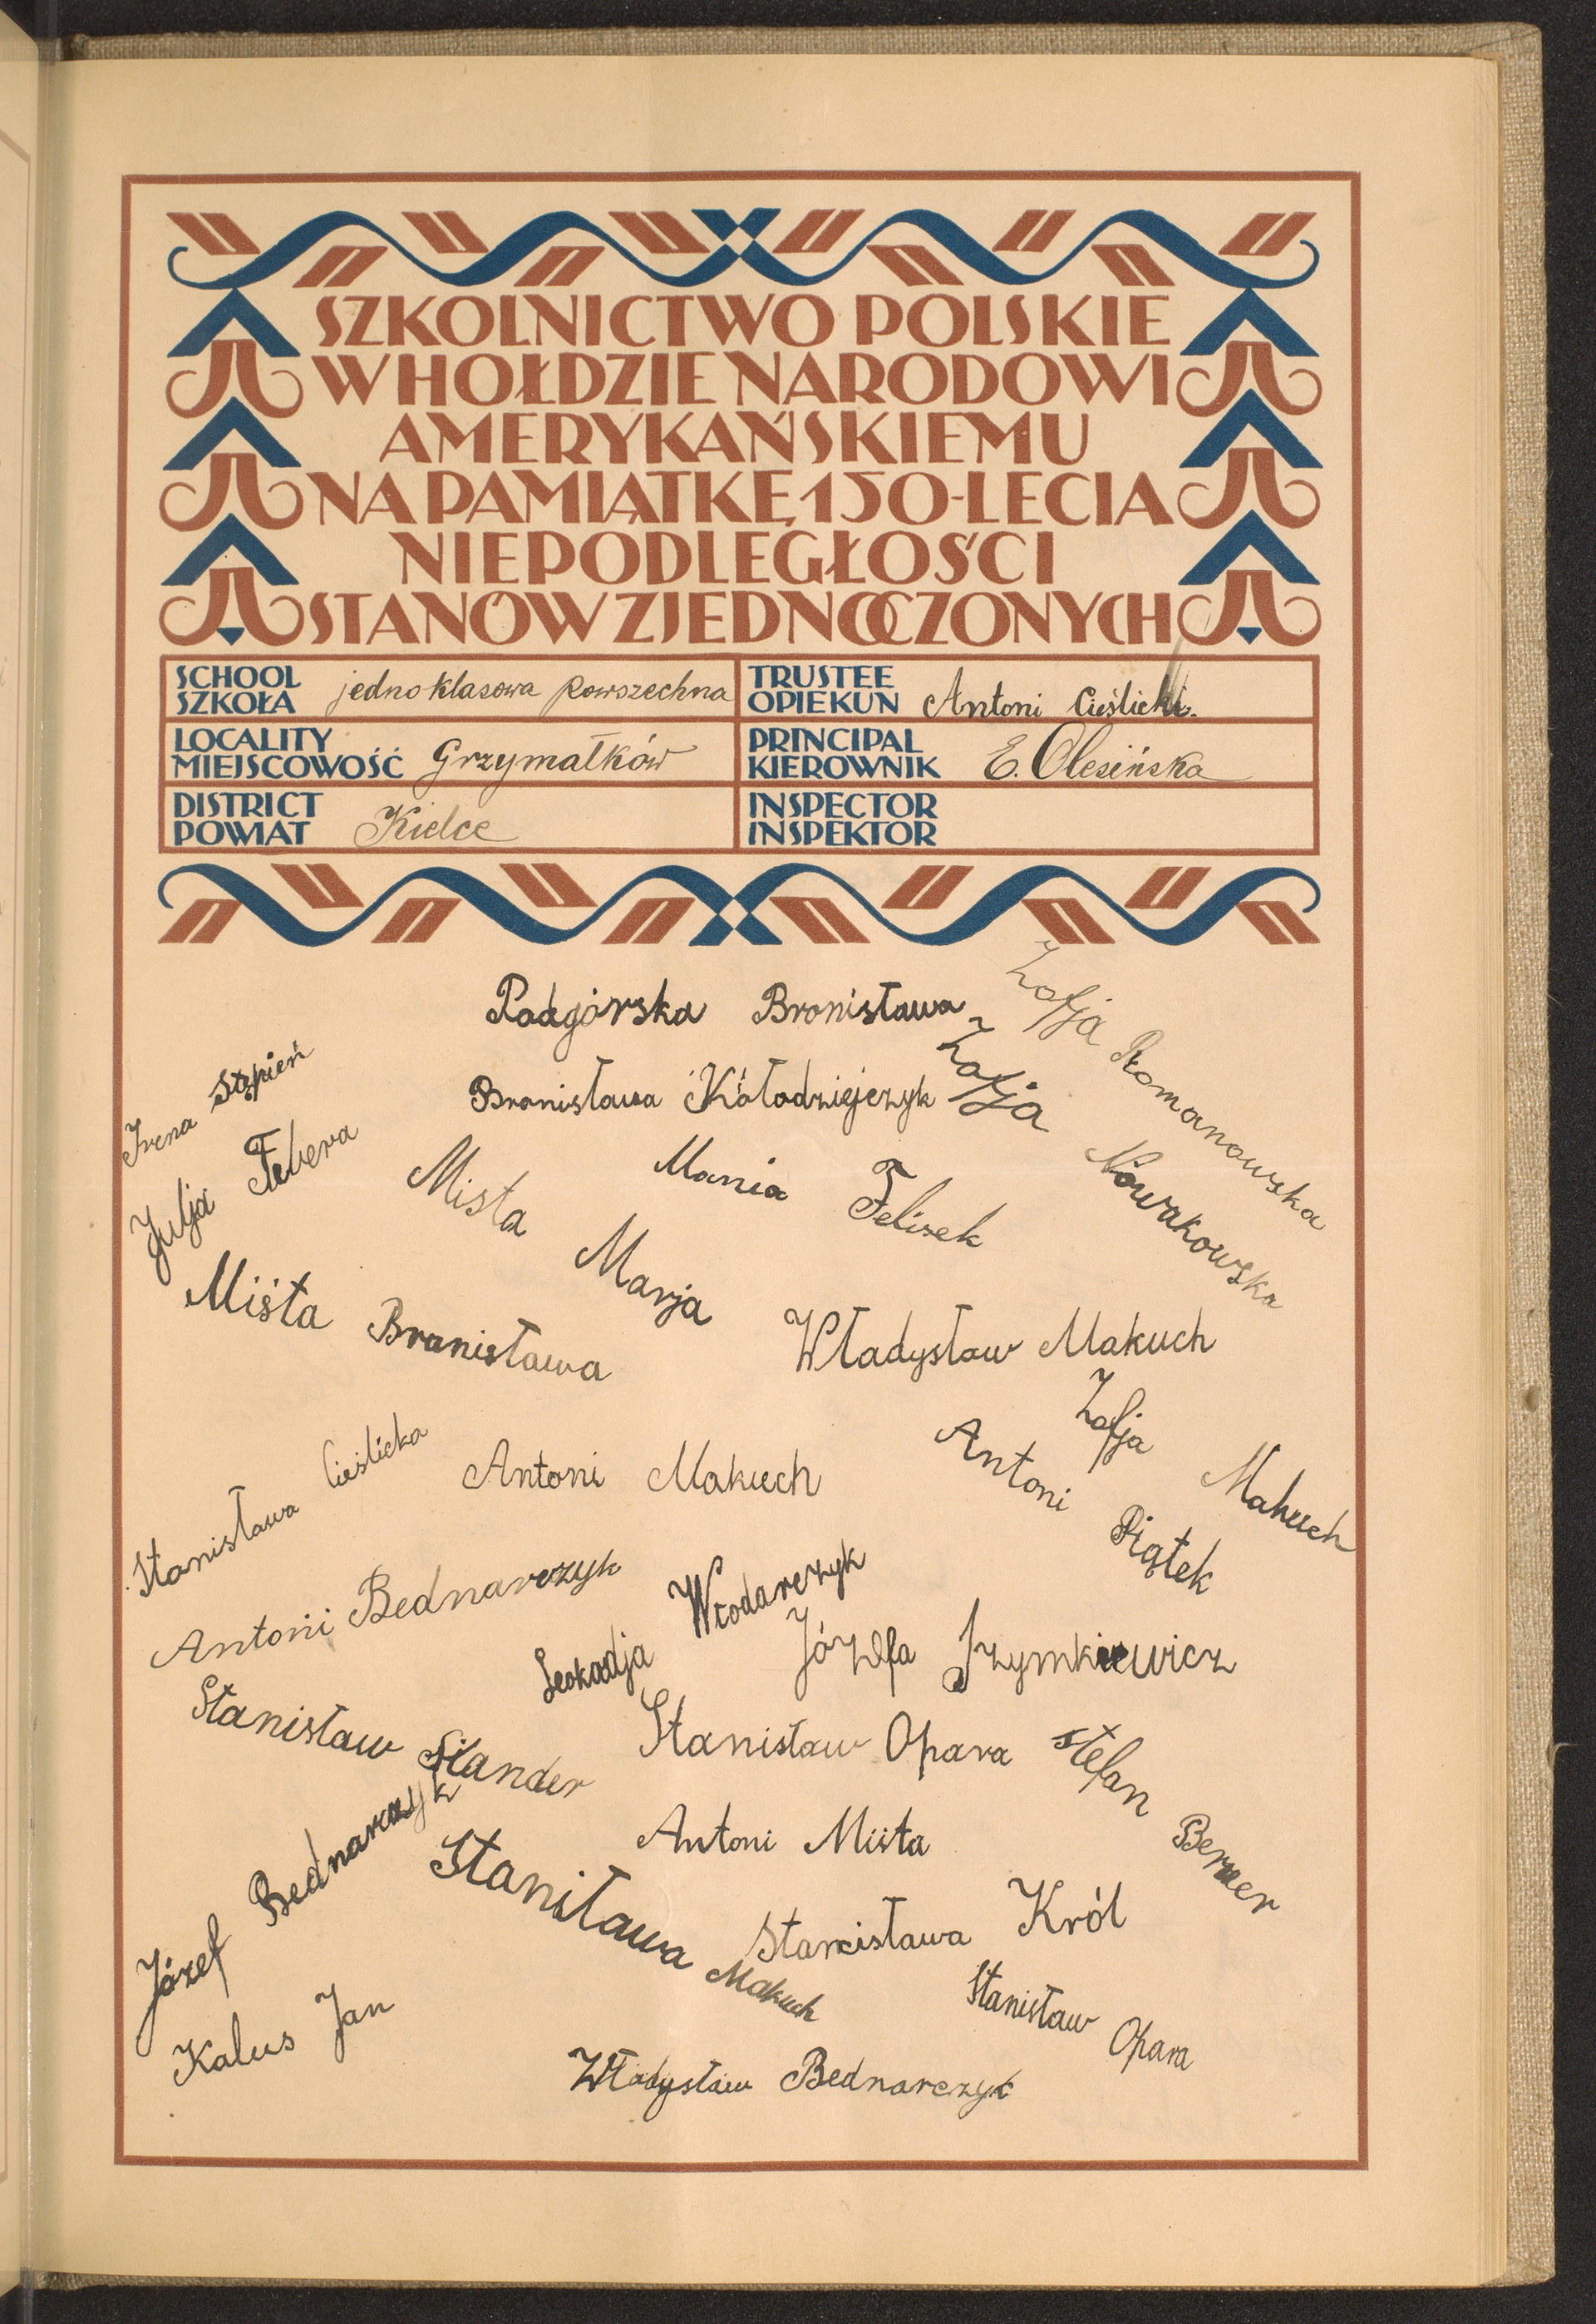 SZKOLNICTWO POLSKIE
W HOŁDZIE NARODOWI
AMERYKAŃSKIEMU
NA PAMIĄTKĘ 150-LECIA
NIEPODLEGŁOŚCI
STANÓW ZJEDNOCZONYCH
SCHOOL
SZKOŁA jednoklasowa Powszechna
TRUSTEE
OPIEKUN Antoni Cieślicki.
LOCALITY
MIEJSCOWOŚĆ Grzymałków
PRINCIPAL
KIEROWNIK E. Olesińska
DISTRICT
POWIAT Kielce
INSPECTOR
INSPEKTOR
Podgórska Bronisława
Zofja Romanowska
Irena Stępień
Bronisława Kołodziejczyk
Zofja Nowakowska
Julja Febera
Mista Marja
Mania Felisek
Miśta Bronisława
Władysław Makuch
Zofja Makuch
Stanisława Cieślicka
Antoni Makuch
Antoni Piątek
Antoni Bednarczyk
Leokadja Włodarczyk
Józefa Szymkiewicz
Stanisław Slander
Stanisław Opara
Stefan Berner
Józef Bednarczyk
Antoni Miśta
Stanisława Makuch
Stanisława Król
Kalus Jan
Stanisław Opara
Władysław Bednarczyk